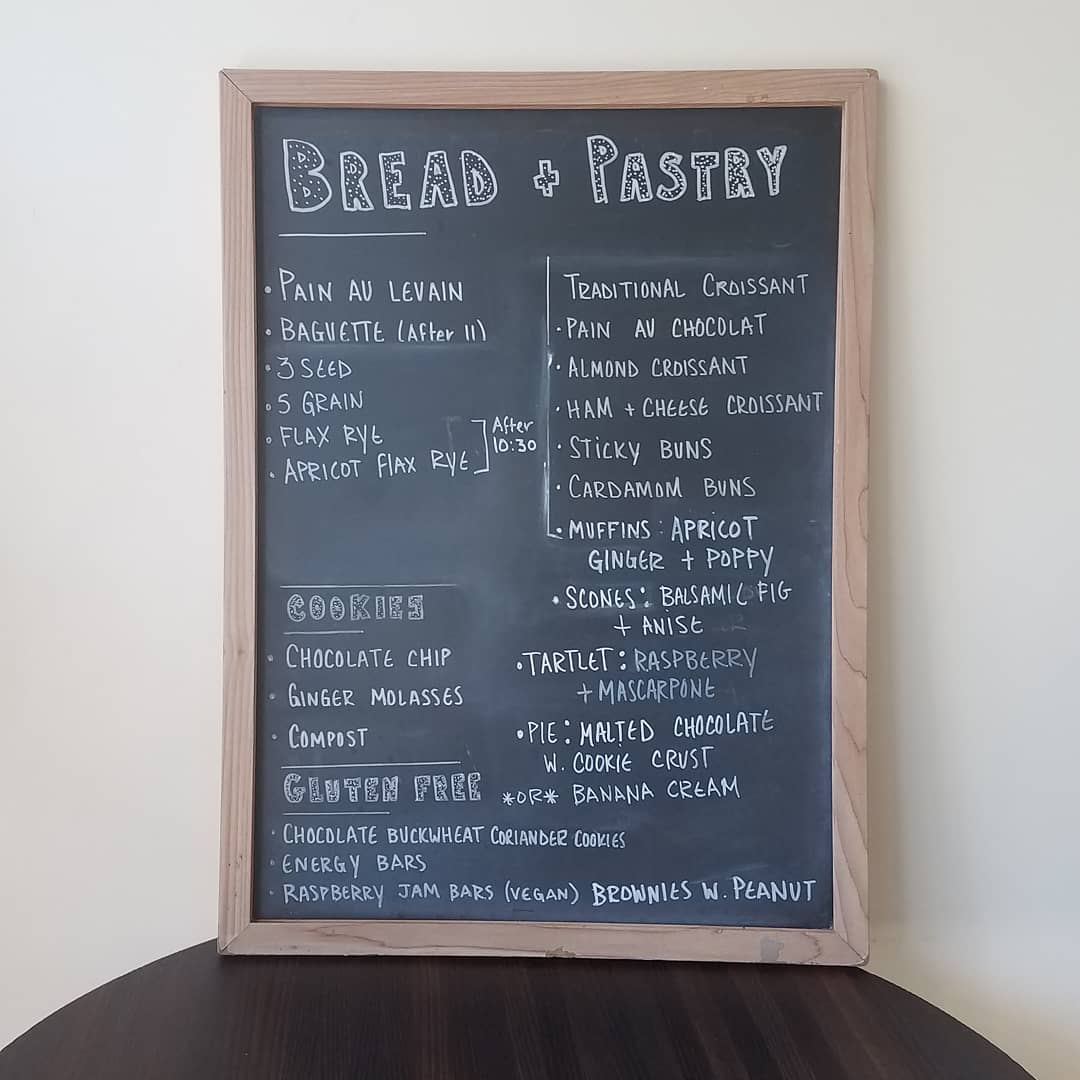 BREAD + PASTRY
• PAIN AU LEVAIN
• BAGUETTE (After 11)
• 3 SEED
• 5 GRAIN
• FLAX RYE
• APRICOT FLAX RYE
After
10:30
COOKIES
• CHOCOLATE CHIP
• GINGER MOLASSES
• COMPOST
TRADITIONAL CROISSANT
• PAIN AU CHOCOLAT
• ALMOND CROISSANT
• HAM + CHEESE CROISSANT
• STICKY BUNS
• CARDAMOM BUNS
• MUFFINS: APRICOT
GINGER + POPPY
• SCONES: BALSAMIC FIG
+ ANISE
• TARTLET: RASPBERRY
+ MASCARPONE
• PIE: MALTED CHOCOLATE
W. COOKIE CRUST
*OR* BANANA CREAM
GLUTEN FREE
• CHOCOLATE BUCKWHEAT CORIANDER COOKIES
• ENERGY BARS
• RASPBERRY JAM BARS (VEGAN) BROWNIES W. PEANUT